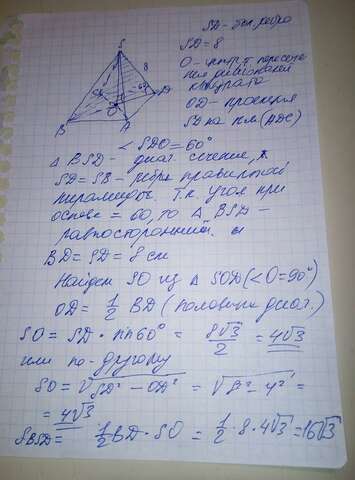 SD - бок. ребро
SD = 8
O - центр пересече
ния диагоналей
квадрата
OD - проекция
SD на пл. (ADC)
S
8
60°
D
O
B
A
< SDO = 60°
Δ BSD - диаг. сечение,
SD = SB - ребра правильной
пирамиды. Т.к. угол при
основ = 60, то Δ BSD -
равносторонний. и
BD = SD = 8 см
Найдем SO из Δ SOD (<O = 90°)
OD = 1/2 BD (половина диаг.)
SO = SD · sin 60° = 8√3/2 = 4√3
или по-другому
SO = √SD² - OD² = √8² - 4² =
= 4√3
S BSD = 1/2 BD · SO = 1/2 · 8 · 4√3 = 16√3